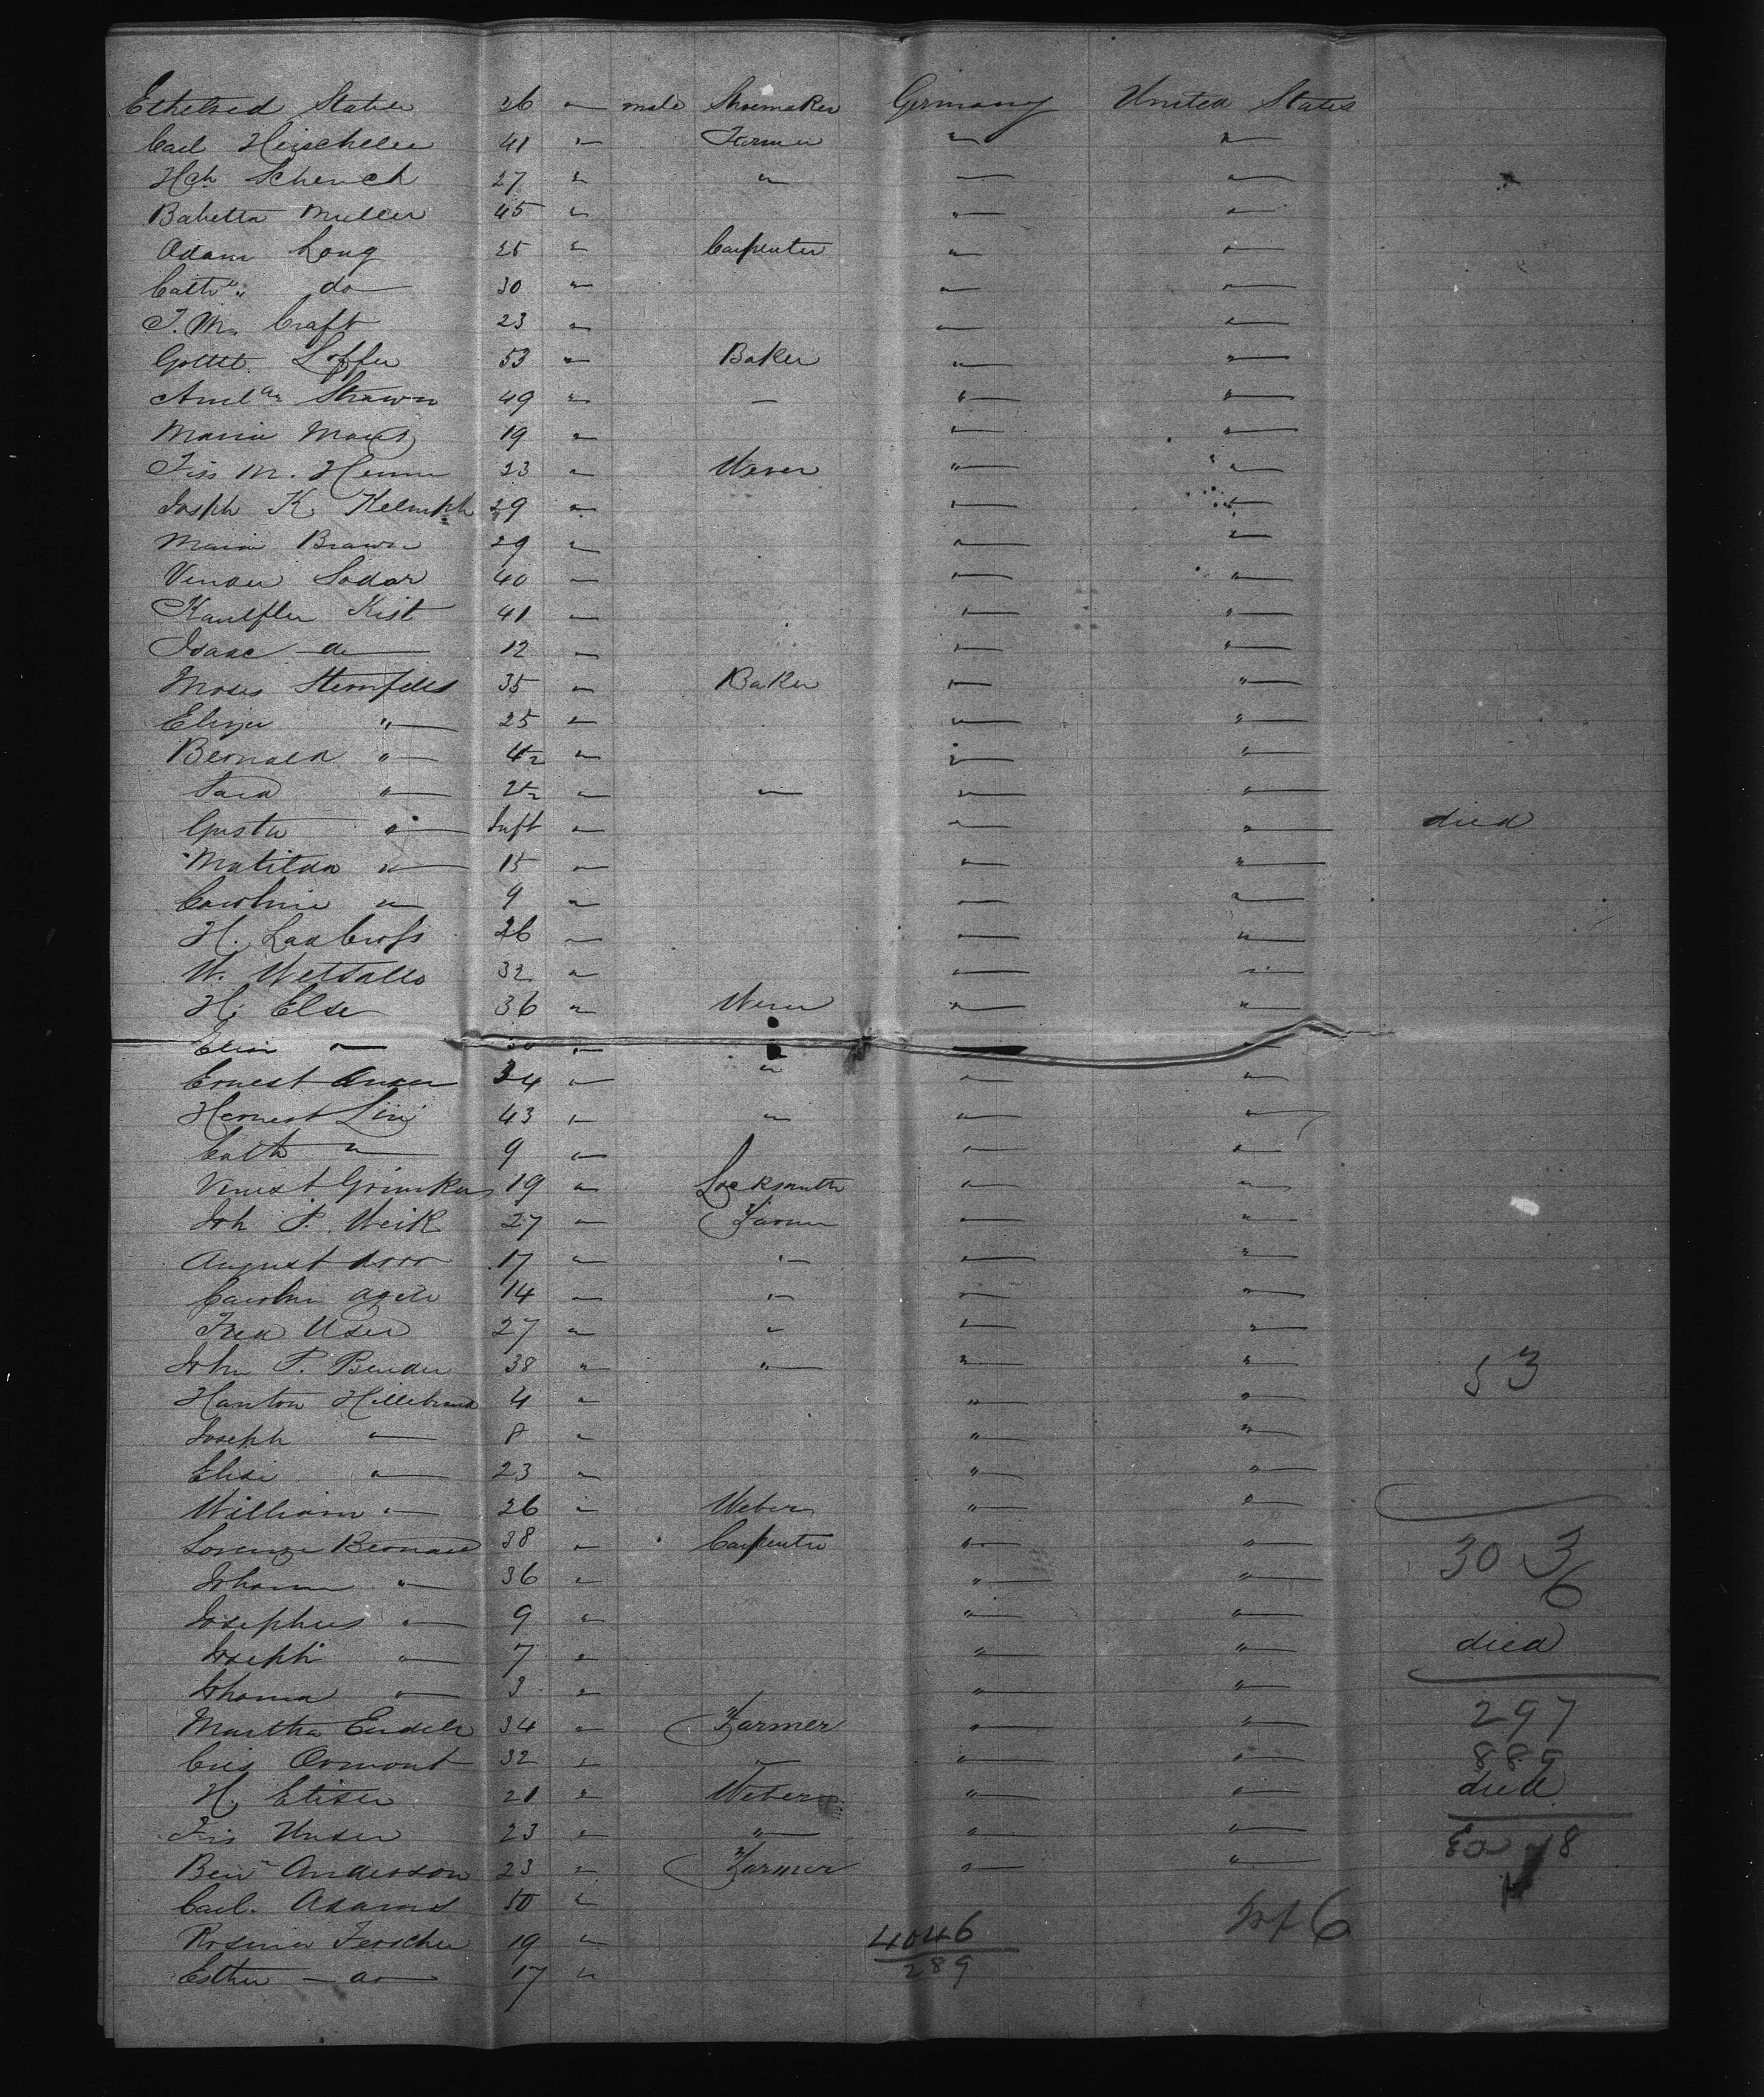 Ethelred Statier 26 " male Shoemaker Germany United States
Carl Heischelee 41 " Farmer " "
Hch Schenck 27 " " " "
Babetta Muller 45 " " "
Adam Long 25 " Carpenter " "
Cath " do 30 " " "
J. M. Craft 23 " " "
Gottl. Loffer 53 " Baker " "
Amel Strawn 49 " — " "
Maria 19 " " "
Fis M. Henne 23 " Wever " "
Joseph K. Kelmph 29 " " "
Maria Brawn 29 " " "
Sodar 40 " " "
Kist 41 " " "
Isaac do 12 " " "
Moses Sternfells 35 " Baker " "
Eliza " 25 " " "
Bernard " 4½ " " "
Sara " 2½ " " " "
Gusta " Inft " " " died
Matilda " 15 " " "
Caroline " 9 " " "
H. 26 " " "
W. Wetsalls 32 " " "
H. Else 36 " Wever " "
Elisi " " " " "
Ernest 34 " " " "
Hernest Lini 43 " " " "
Cath " 9 " " "
Grimkus 19 " Locksmith " "
Joh P. Weik 27 " Farmer " "
August 17 " " " "
Carolni 14 " " " "
Fred User 27 " " " "
John P. Bender 38 " " " " 53
Hanton Hillebrand 4 " " "
Joseph " 8 " " "
Elise " 23 " " "
William " 26 " Weber " "
Lorenze Bernard 38 " Carpenter " " 30 3/6
Johann " 36 " " "
Josephus " 9 " " "
Joseph " 7 " " " died
Johanna " 3 " " "
Martha Endele 34 " Farmer " " 297
Cris Ormont 32 " " " " 889
H. Etiser 21 " Weber " " died
Fris Unser 23 " " " "
Ben Anderson 23 " Farmer " "
Carl. Adams 50 "
Rosina Feroche 19 " 4046 Inf 6
Esther — do 17 " 289